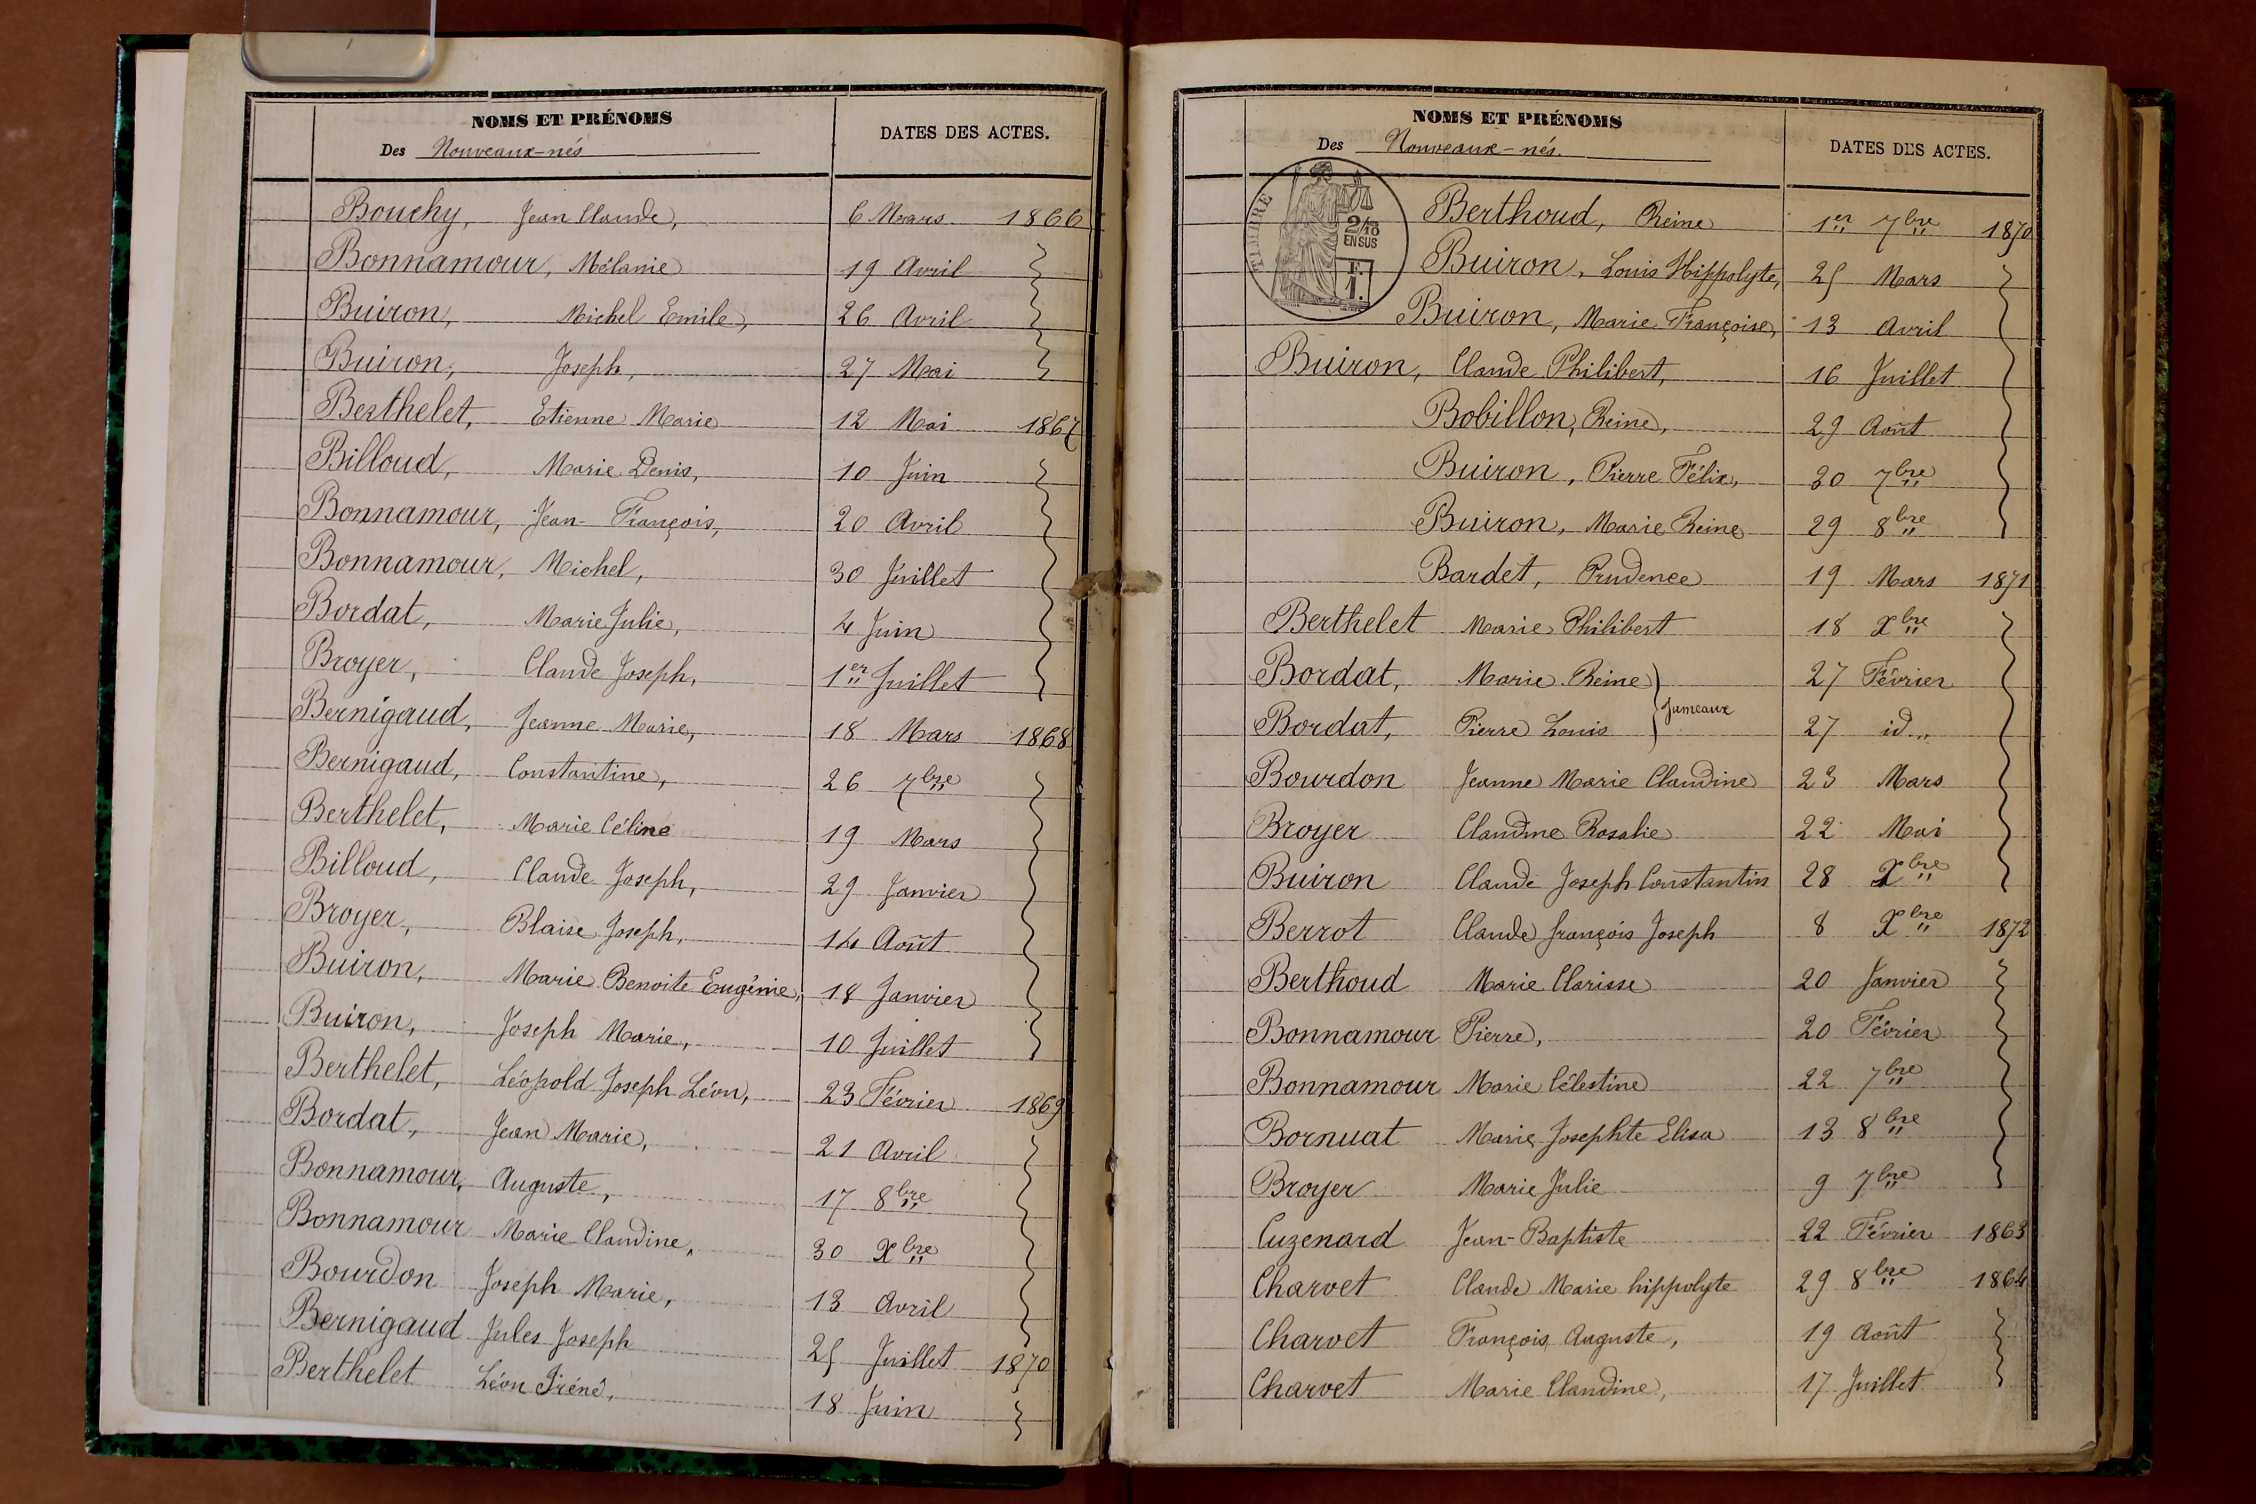 NOMS ET PRÉNOMS
Des Nouveaux-nés
DATES DES ACTES.
Bouchy, Jean Claude, 6 Mars 1866
Bonnamour, Mélanie 19 Avril
Buiron, Michel Emile, 26 Avril
Buiron, Joseph, 27 Mai
Berthelet, Etienne Marie 12 Mai 1867
Billoud, Marie Denis, 10 Juin
Bonnamour, Jean-François, 20 Avril
Bonnamour, Michel, 30 Juillet
Bordat, Marie Julie, 4 Juin
Broyer, Claude Joseph, 1er Juillet
Bernigaud, Jeanne Marie, 18 Mars 1868
Bernigaud, Constantine, 26 7bre
Berthelet, Marie Céline 19 Mars
Billoud, Claude Joseph, 29 Janvier
Broyer, Blaise Joseph, 14 Août
Buiron, Marie Benoite Eugénie, 18 Janvier
Buiron, Joseph Marie, 10 Juillet
Berthelet, Léopold Joseph Léon, 23 Février 1869
Bordat, Jean Marie, 21 Avril
Bonnamour, Auguste, 17 8bre
Bonnamour Marie Claudine, 30 Xbre
Bourdon Joseph Marie, 13 Avril
Bernigaud Jules Joseph 25 Juillet 1870
Berthelet Léon Iréné, 18 Juin
NOMS ET PRÉNOMS
Des Nouveaux-nés.
DATES DES ACTES.
TIMBRE
2/10
EN SUS
F.
1.
Berthoud, Reine 1er 7bre 1870
Buiron, Louis Hippolyte, 25 Mars
Buiron, Marie Françoise, 13 Avril
Buiron, Claude Philibert, 16 Juillet
Bobillon, Reine, 29 Août
Buiron, Pierre Félix, 30 7bre
Buiron, Marie Reine 29 8bre
Bardet, Prudence 19 Mars 1871
Berthelet Marie Philibert 18 Xbre
Bordat, Marie Reine 27 Février
Jumeaux
Bordat, Pierre Louis 27 id..
Bourdon Jeanne Marie Claudine 23 Mars
Broyer Claudine Rosalie 22 Mai
Buiron Claude Joseph Constantin 28 Xbre
Berrot Claude françois Joseph 8 Xbre 1872
Berthoud Marie Clarisse 20 Janvier
Bonnamour Pierre, 20 Février
Bonnamour Marie Célestine 22 7bre
Bornuat Marie Josephte Elisa 13 8bre
Broyer Marie Julie 9 7bre
Cuzenard Jean-Baptiste 22 Février 1863
Charvet Claude Marie hippolyte 29 8bre 1864
Charvet François Auguste, 19 Août
Charvet Marie Claudine, 17 Juillet